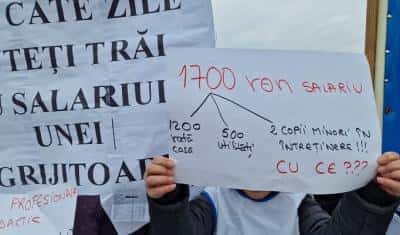 CATE ZILE
TEȚI TRĂI
SALARIUL
UNEI
GRIJITOARE
PROFESIONAL
1700 ron SALARIU
1200
rată
casa
500
utilități
2 COPII MINORI ÎN
ÎNTREȚINERE !!!
CU CE ???